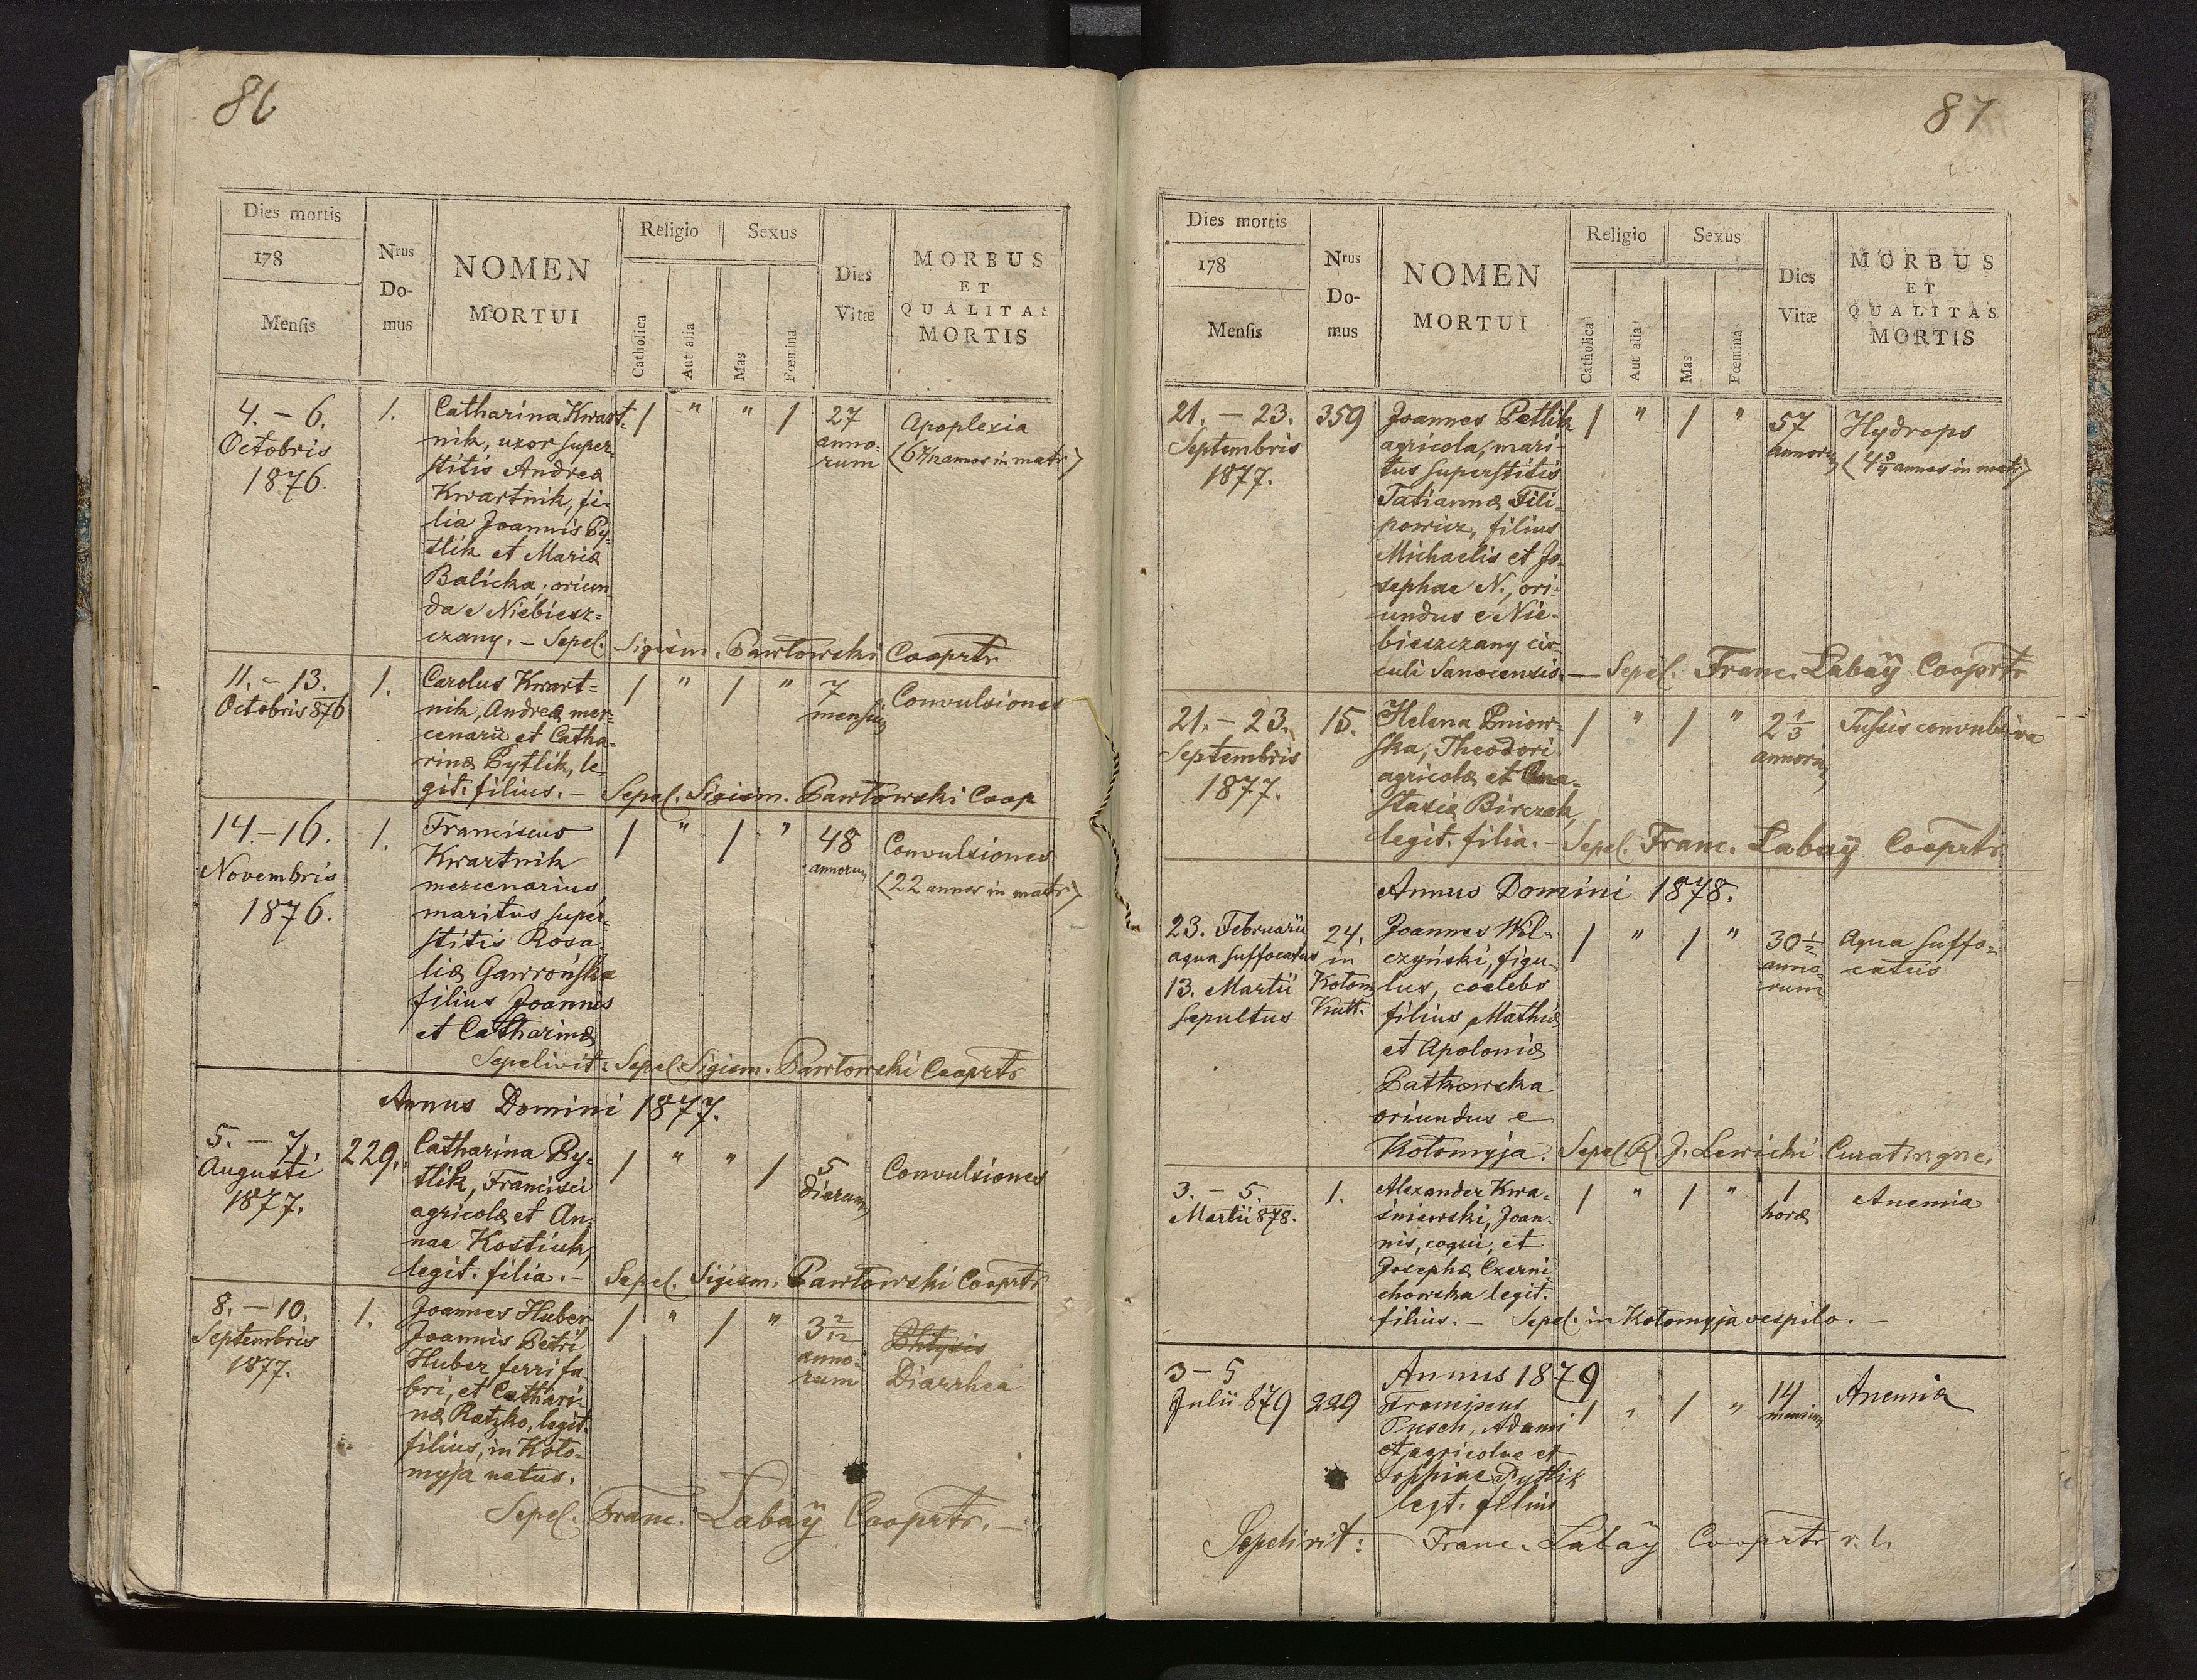 86
Dies mortis
178
Mensis
Nrus
Do-
mus
NOMEN
MORTUI
Religio
Sexus
Catholica
Aut alia
Mas
Fœmina
Dies
Vitæ
MORBUS
ET
QUALITAS
MORTIS
4. – 6.
Octobris
1876.
1.
Catharina Kwart-
nik, uxor super-
stitis Andreæ
Kwartnik, fi-
lia Joannis Py-
tlik et Mariæ
Balicka, oriun
da e Niebiesz-
czany. – Sepel. Sigism. Pawłowski Cooprtr
1 " " 1
27
anno-
rum
Apoplexia
(6 7/12 annos in matr.)
11. – 13.
Octobris 876
1.
Carolus Kwart-
nik, Andreæ mer-
cenarii et Catha-
rinæ Pytlik, le-
git. filius. – Sepel. Sigism. Pawłowski Coop
1 " 1 "
7
mensium
Convulsiones
14. – 16.
Novembris
1876.
1.
Franciscus
Kwartnik
mercenarius,
maritus super-
stitis Rosa-
liæ Gawrońska
filius Joannes
et Catharinæ
Sepelivit: Sepel. Sigism. Pawłowski Cooprtr
1 " 1 "
48
annorum
Convulsiones
(22 annos in matr.)
Annus Domini 1877.
5. – 7.
Augusti
1877.
229.
Catharina Py-
tlik, Francisci
agricolæ et An-
nae Kostiuk,
legit. filia. – Sepel. Sigism. Pawłowski Cooprtr
1 " " 1
5
dierum
Convulsiones
8. – 10.
Septembris
1877.
1.
Joannes Huber,
Joannis Petri
Huber ferri fa-
bri, et Cathari-
næ Ratzko, legit.
filius, in Koło-
myja natus.
1 " 1 "
3 2/12
anno-
rum
Phtysis
Diarrhea
Sepel. Franc. Labaÿ Cooprtr. –
87
Dies mortis
178
Mensis
Nrus
Do-
mus
NOMEN
MORTUI
Religio
Sexus
Catholica
Aut alia
Mas
Fœmina
Dies
Vitæ
MORBUS
ET
QUALITAS
MORTIS
21. – 23.
Septembris
1877.
359
Joannes Petlik
agricola, mari-
tus superstitis
Tatiannæ Fili-
powicz, filius
Michaelis et Jo-
sephae N., ori-
undus e Nie-
bieszczany cir-
culi Sanocensis. — Sepel. Franc. Labaÿ Cooprtr
1 " 1 "
57
annorum
Hydrops
(4 3/4 annos in matr.)
21. – 23.
Septembris
1877.
15.
Helena Pniow-
ska, Theodori
agricolæ et Ana-
stasiæ Birczak,
legit. filia. – Sepel. Franc. Labaÿ Cooprtr
1 " 1 "
2 1/3
annorum
Tussis convulsiva
Annus Domini 1878.
23. Februarii
aqua suffocatus
13. Martii
sepultus
24.
in
Kołom.
Kutt.
Joannes Wil-
czyński, figu-
lus, coelebs
filius Mathiæ
et Apoloniæ
Patkowska
oriundus e
Kołomyja. Sepel. R. J. Lewicki Curat
1 " 1 "
30 1/2
anno-
rum
Aqua suffo-
catus
3. – 5.
Martii 878.
1.
Alexander Kwa-
śniewski, Joan-
nis, coqui, et
Josephæ Czerni-
chowska legit.
filius. – Sepel. in Kołomyja vespilo. –
1 " 1 "
1
horæ
Anemia
Annus 1879
3 – 5
Julii 879
229
Franciscus
Pusch, Adami
et agricolae et
Sophiae Pytlik
legt. filius
1 " 1 "
14
mensium
Anemia
Sepelivit: Franc. Labaÿ Cooprtr r. l.